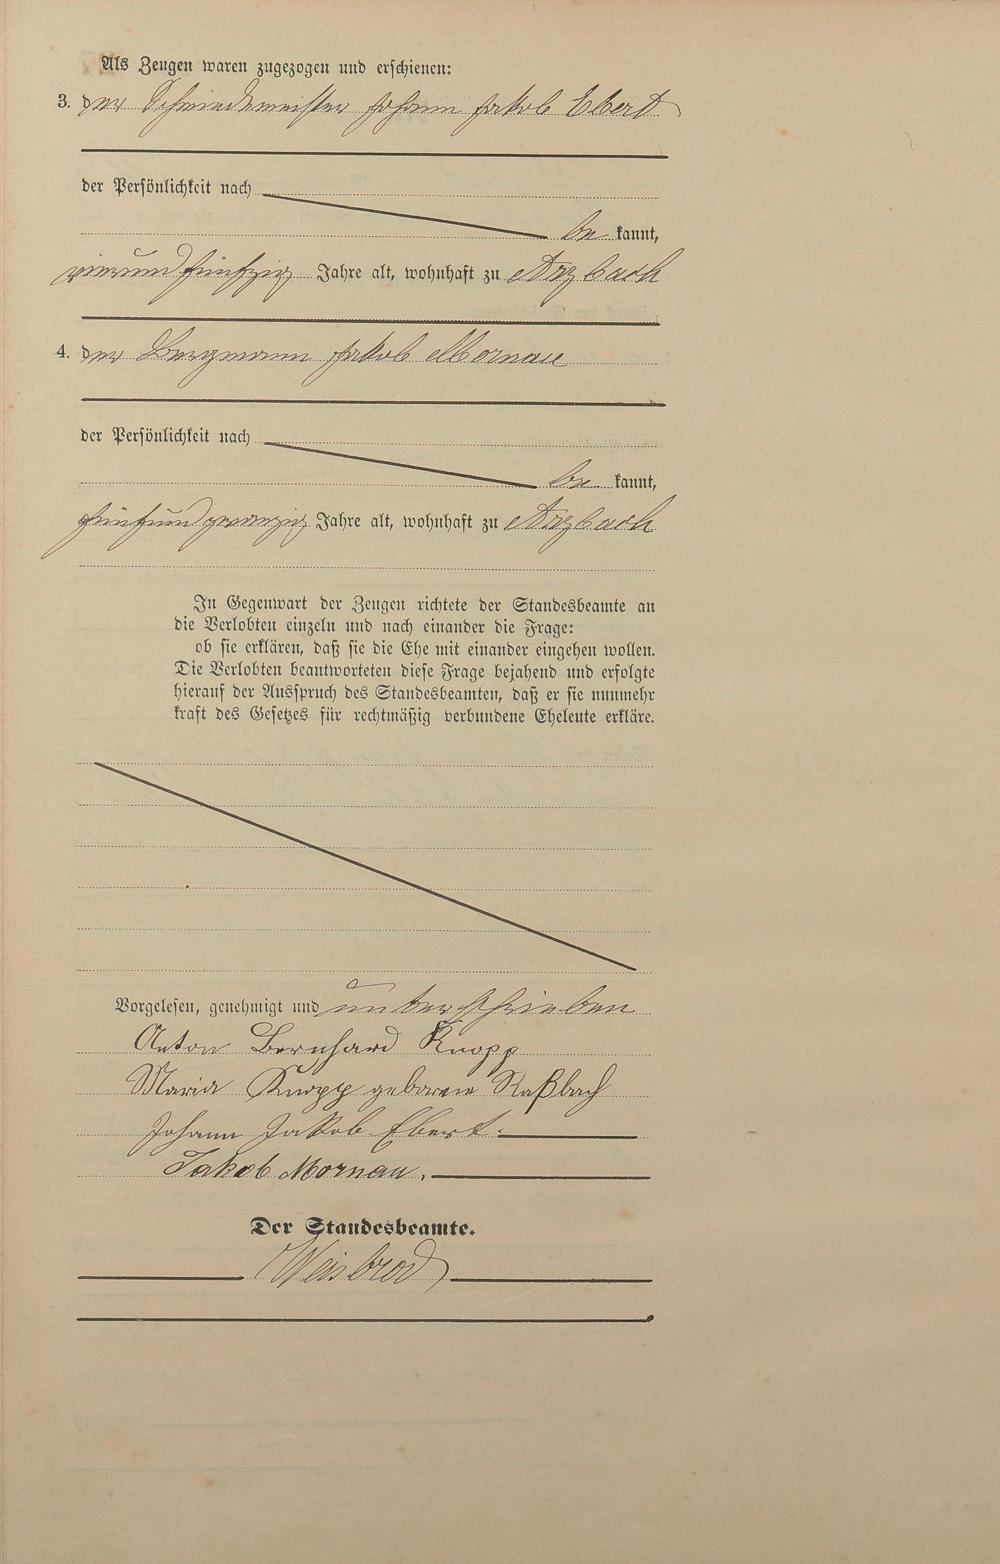 Als Zeugen waren zugezogen und erschienen:
3. der Schmiedemeister Johann Jakob Ebert
der Persönlichkeit nach
be kannt,
vierundfünfzig Jahre alt, wohnhaft zu Arzbach
4. der Bergmann Jakob Mornau
der Persönlichkeit nach
be kannt,
fünfundzwanzig Jahre alt, wohnhaft zu Arzbach
In Gegenwart der Zeugen richtete der Standesbeamte an
die Verlobten einzeln und nach einander die Frage:
ob sie erklären, daß sie die Ehe mit einander eingehen wollen.
Die Verlobten beantworteten diese Frage bejahend und erfolgte
hierauf der Ausspruch des Standesbeamten, daß er sie nunmehr
kraft des Gesetzes für rechtmäßig verbundene Eheleute erkläre.
Vorgelesen, genehmigt und unterschrieben
Anton Bernhard Knopp
Maria Knopp geborene Raßbach
Johann Jakob Ebert.
Jakob Mornau.
Der Standesbeamte.
Weisbrod